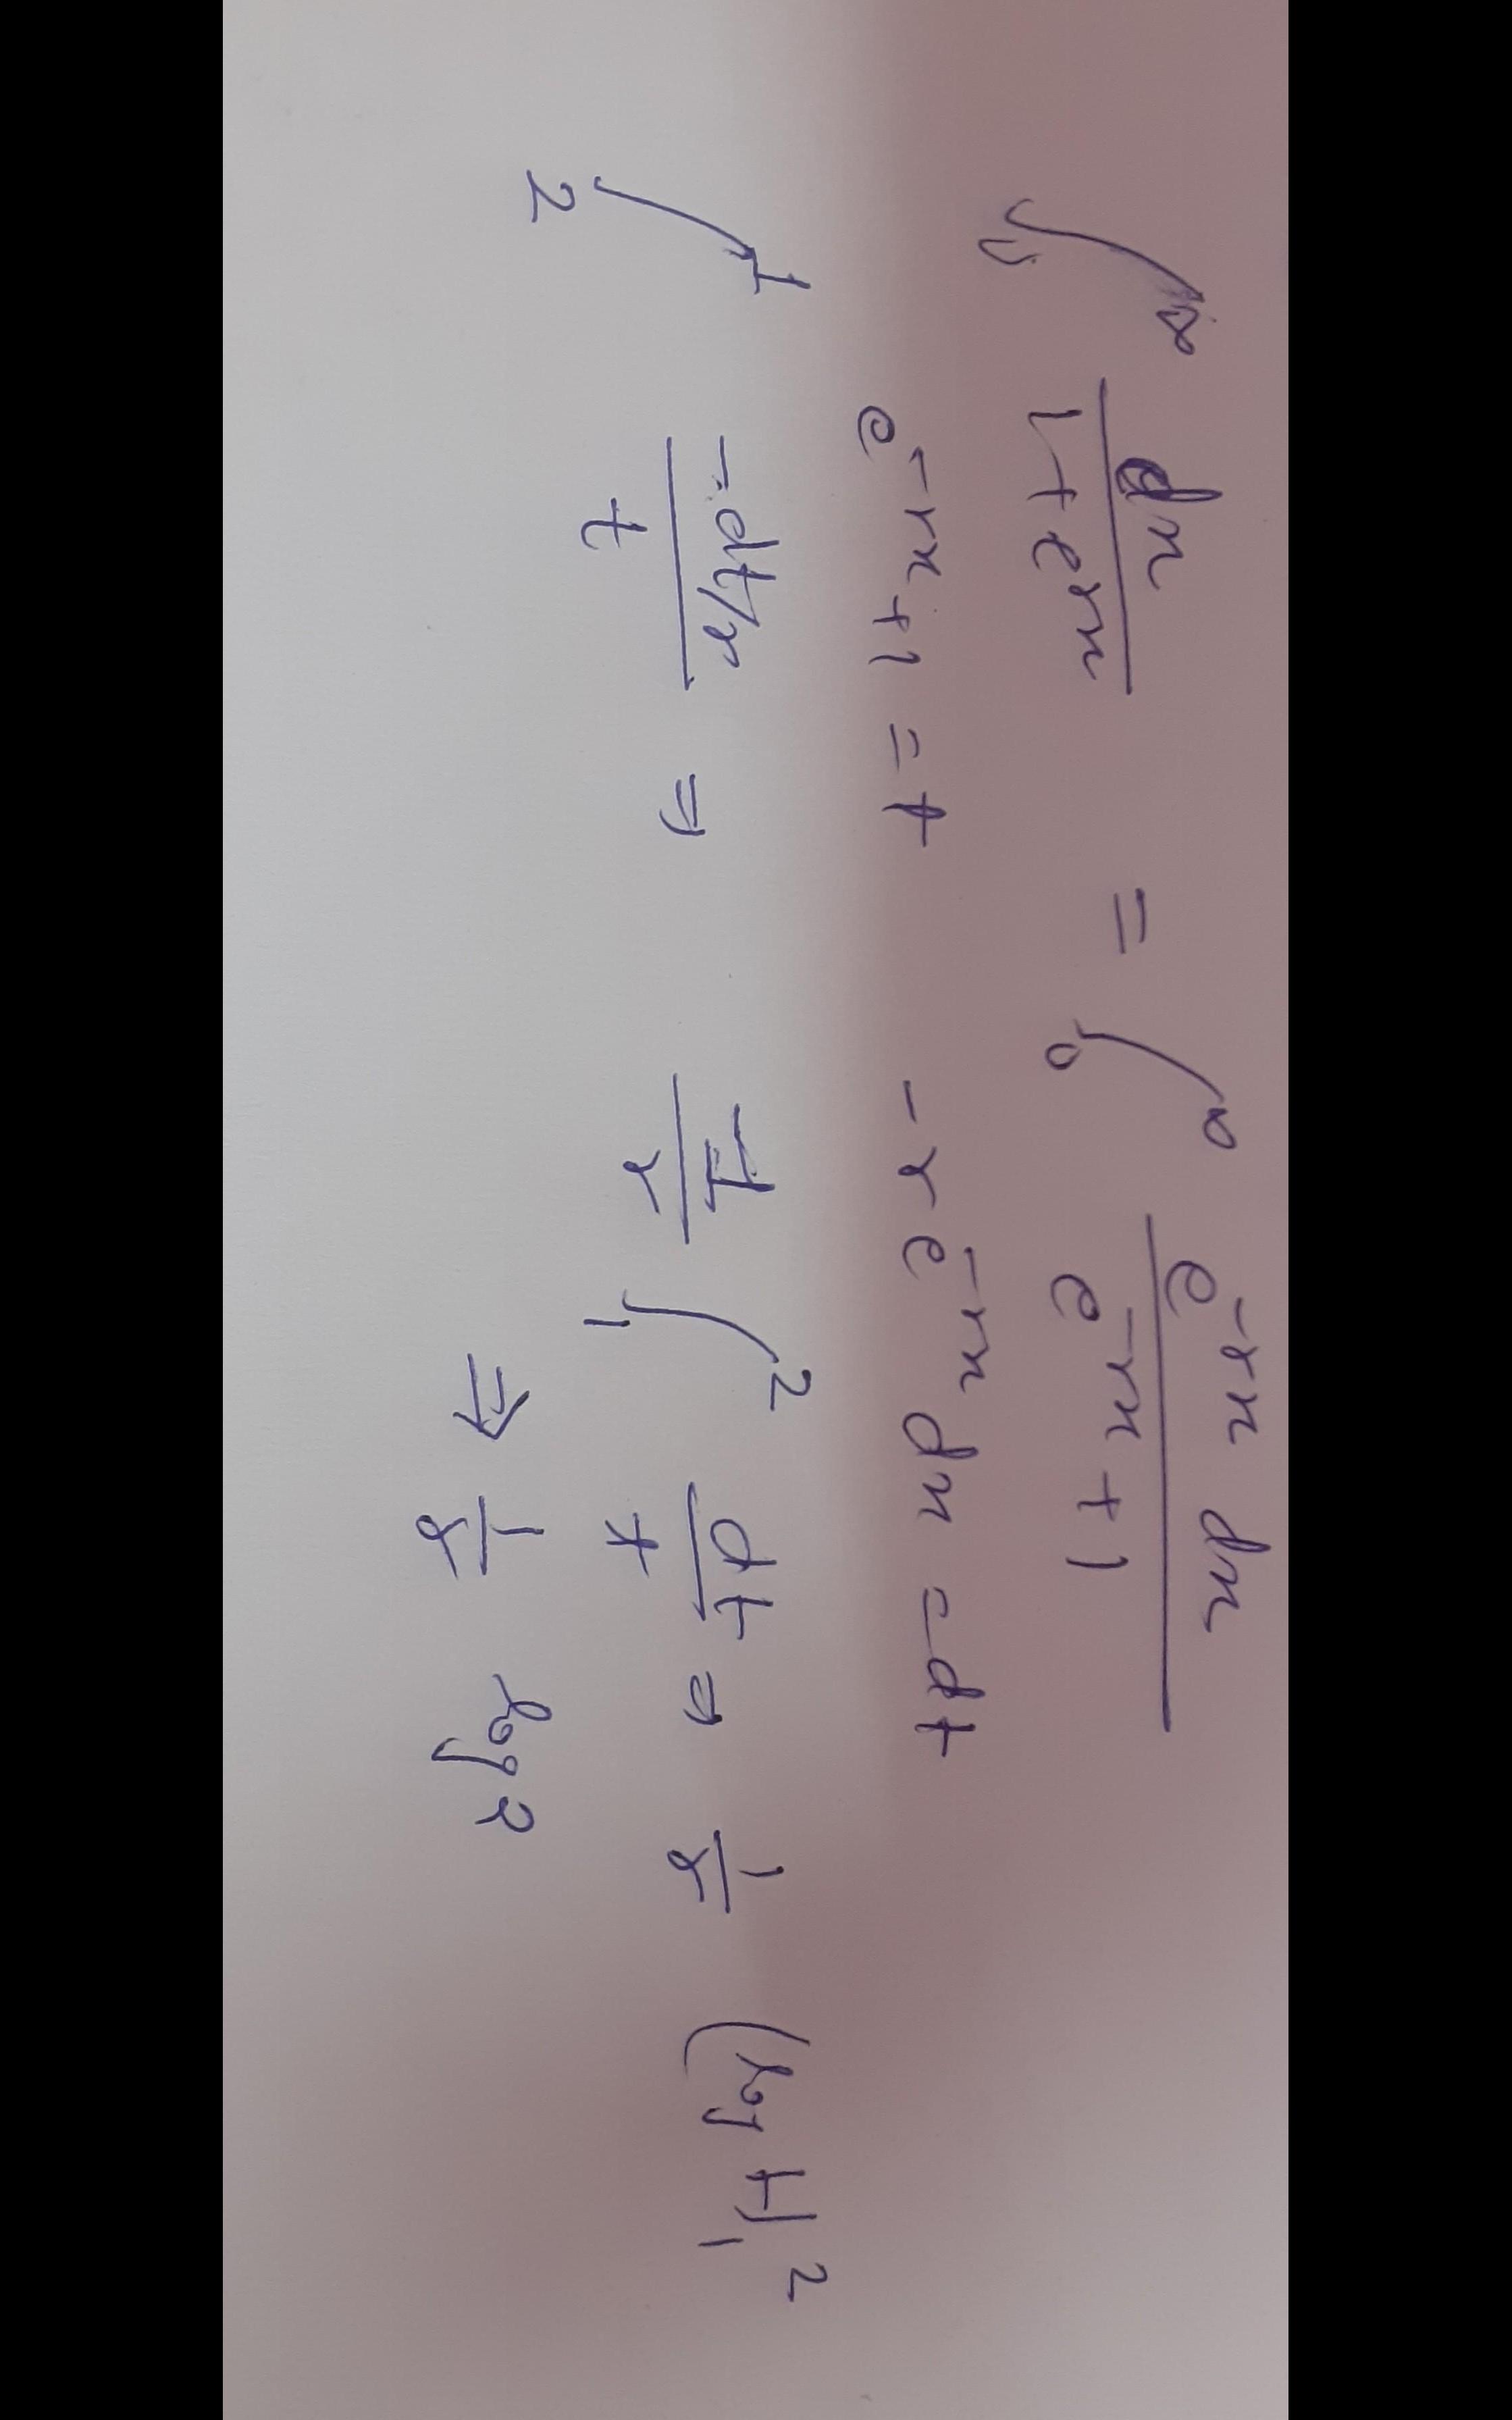 ∫₀^∞ dx / (1 + e^{rx}) = ∫₀^∞ e^{-rx} dx / (e^{-rx} + 1)
e^{-rx} + 1 = t    -r e^{-rx} dx = dt
∫₂^1 (-dt/r) / t ⇒ 1/r ∫₁² dt/t ⇒ 1/r (log t)₁²
⇒ 1/r log 2